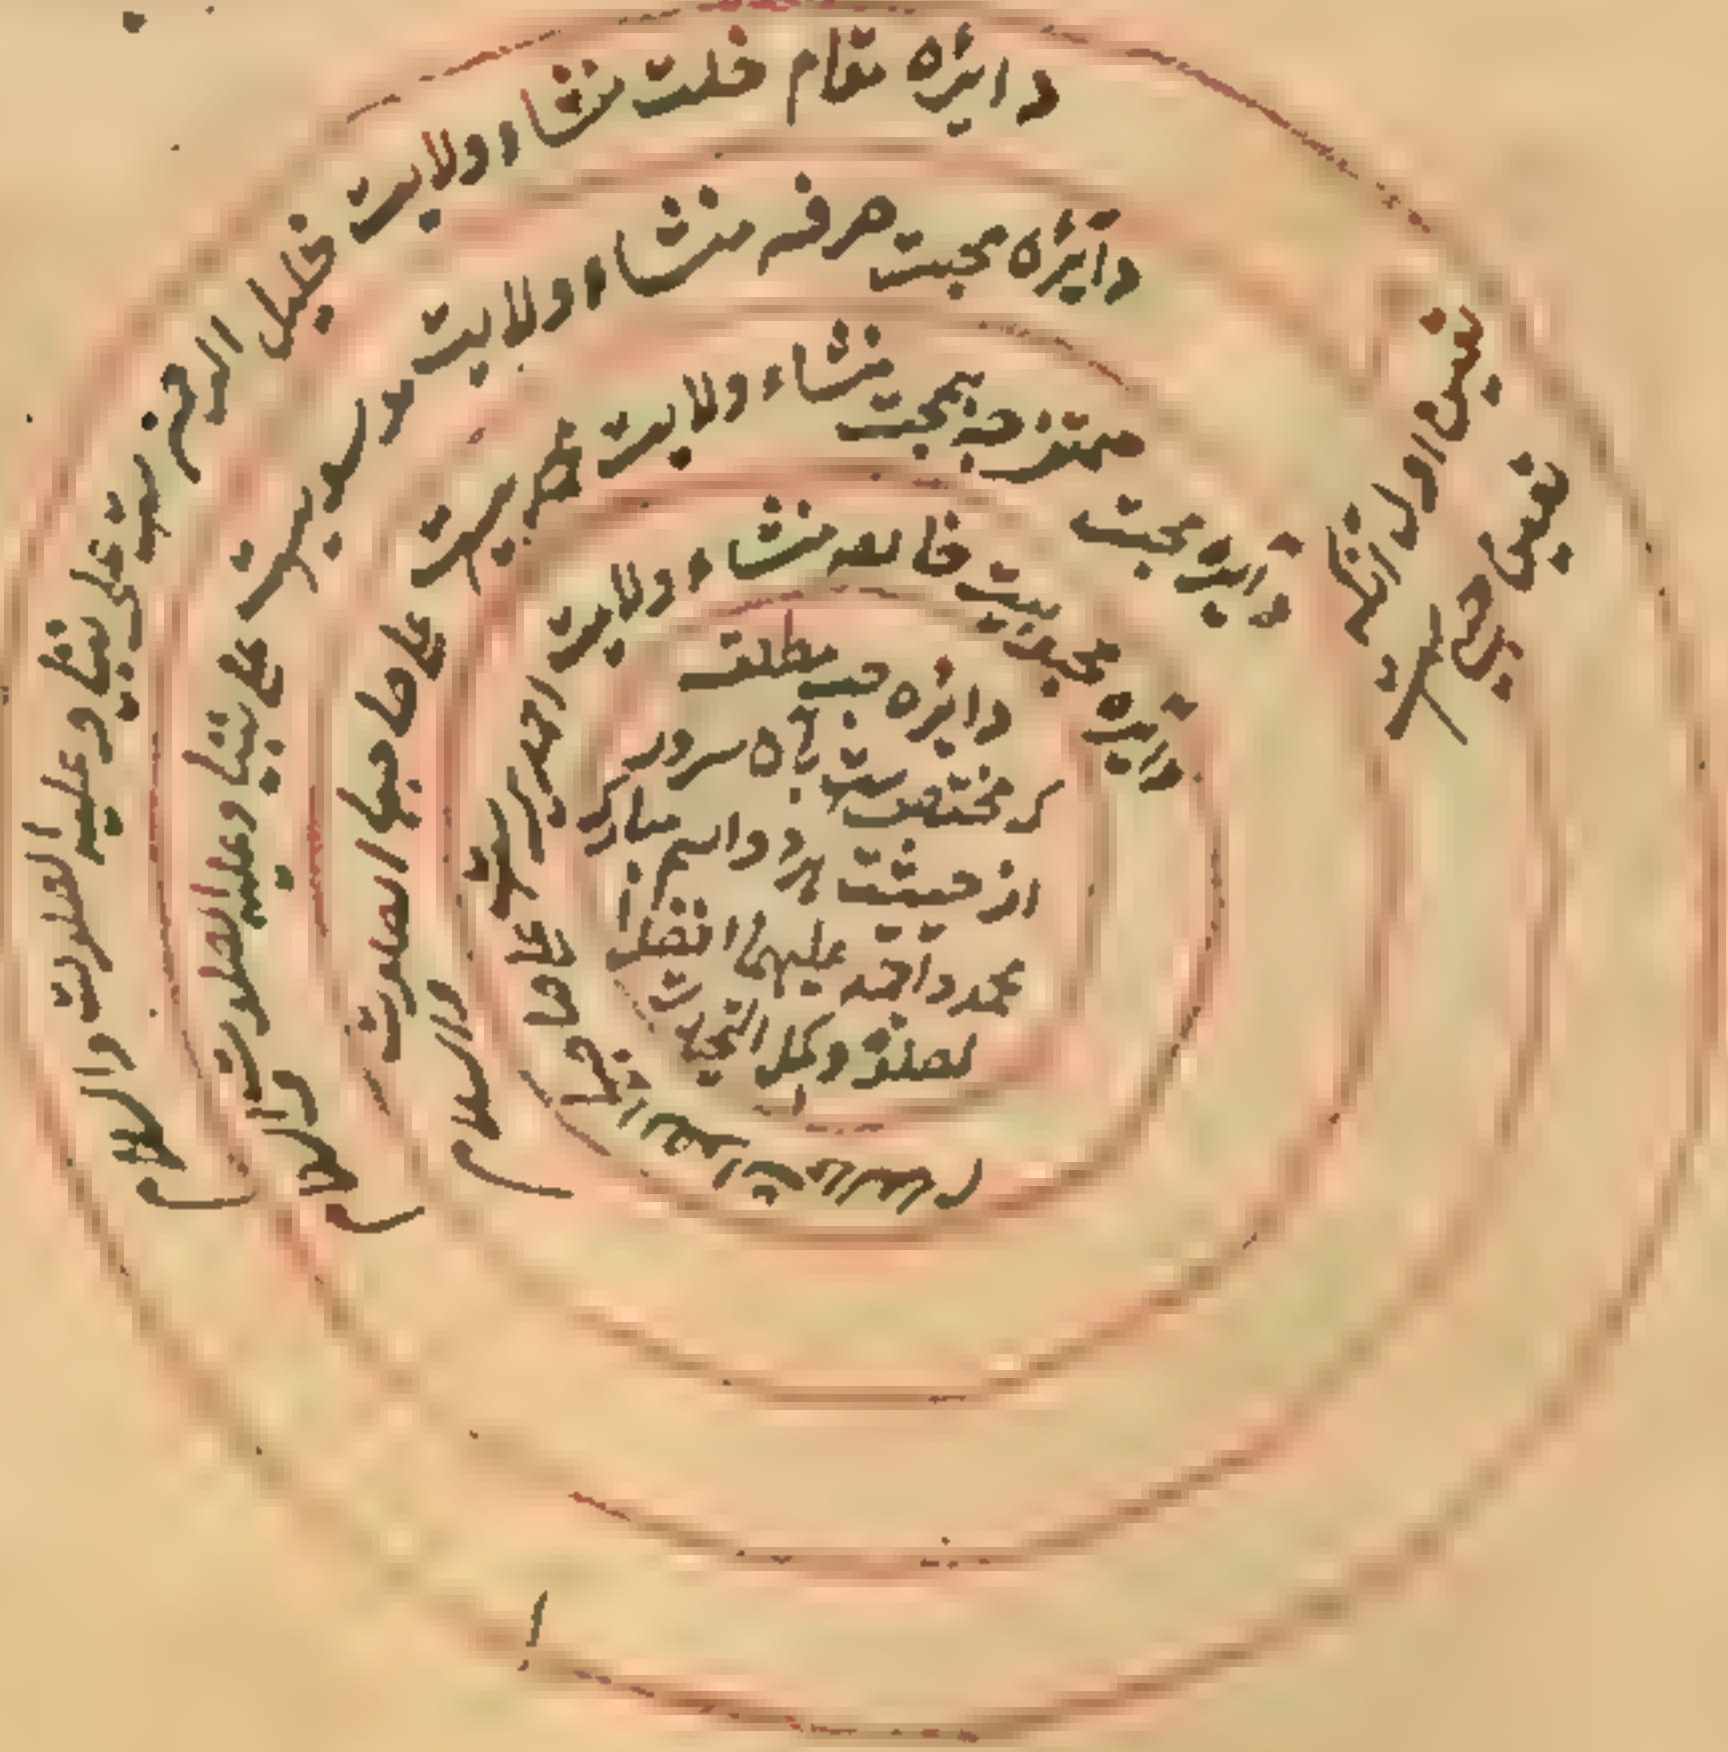 دایره مقام خلت منشاء ولایت خلیل الرحمن ست علی نبینا و علیه الصلوت والسلام
دایره محبت صرفه منشاء ولایت موسویست علی نبینا و علیه الصلوت والسلام
دایره محبت ممتزجه بمحبت منشاء ولایت محمدیست علی صاحبها الصلوت والسلام
دایره محبوبیت خالصه منشاء ولایت احمدیست علی صاحبها
دایره حب مطلق
که مختص ست بآن سرور
از حیثیت هر دو اسم مبارک
محمد و احمد علیهما افضل
لصلوة و کمل التحیات
تعین اول
تعین حبی ست